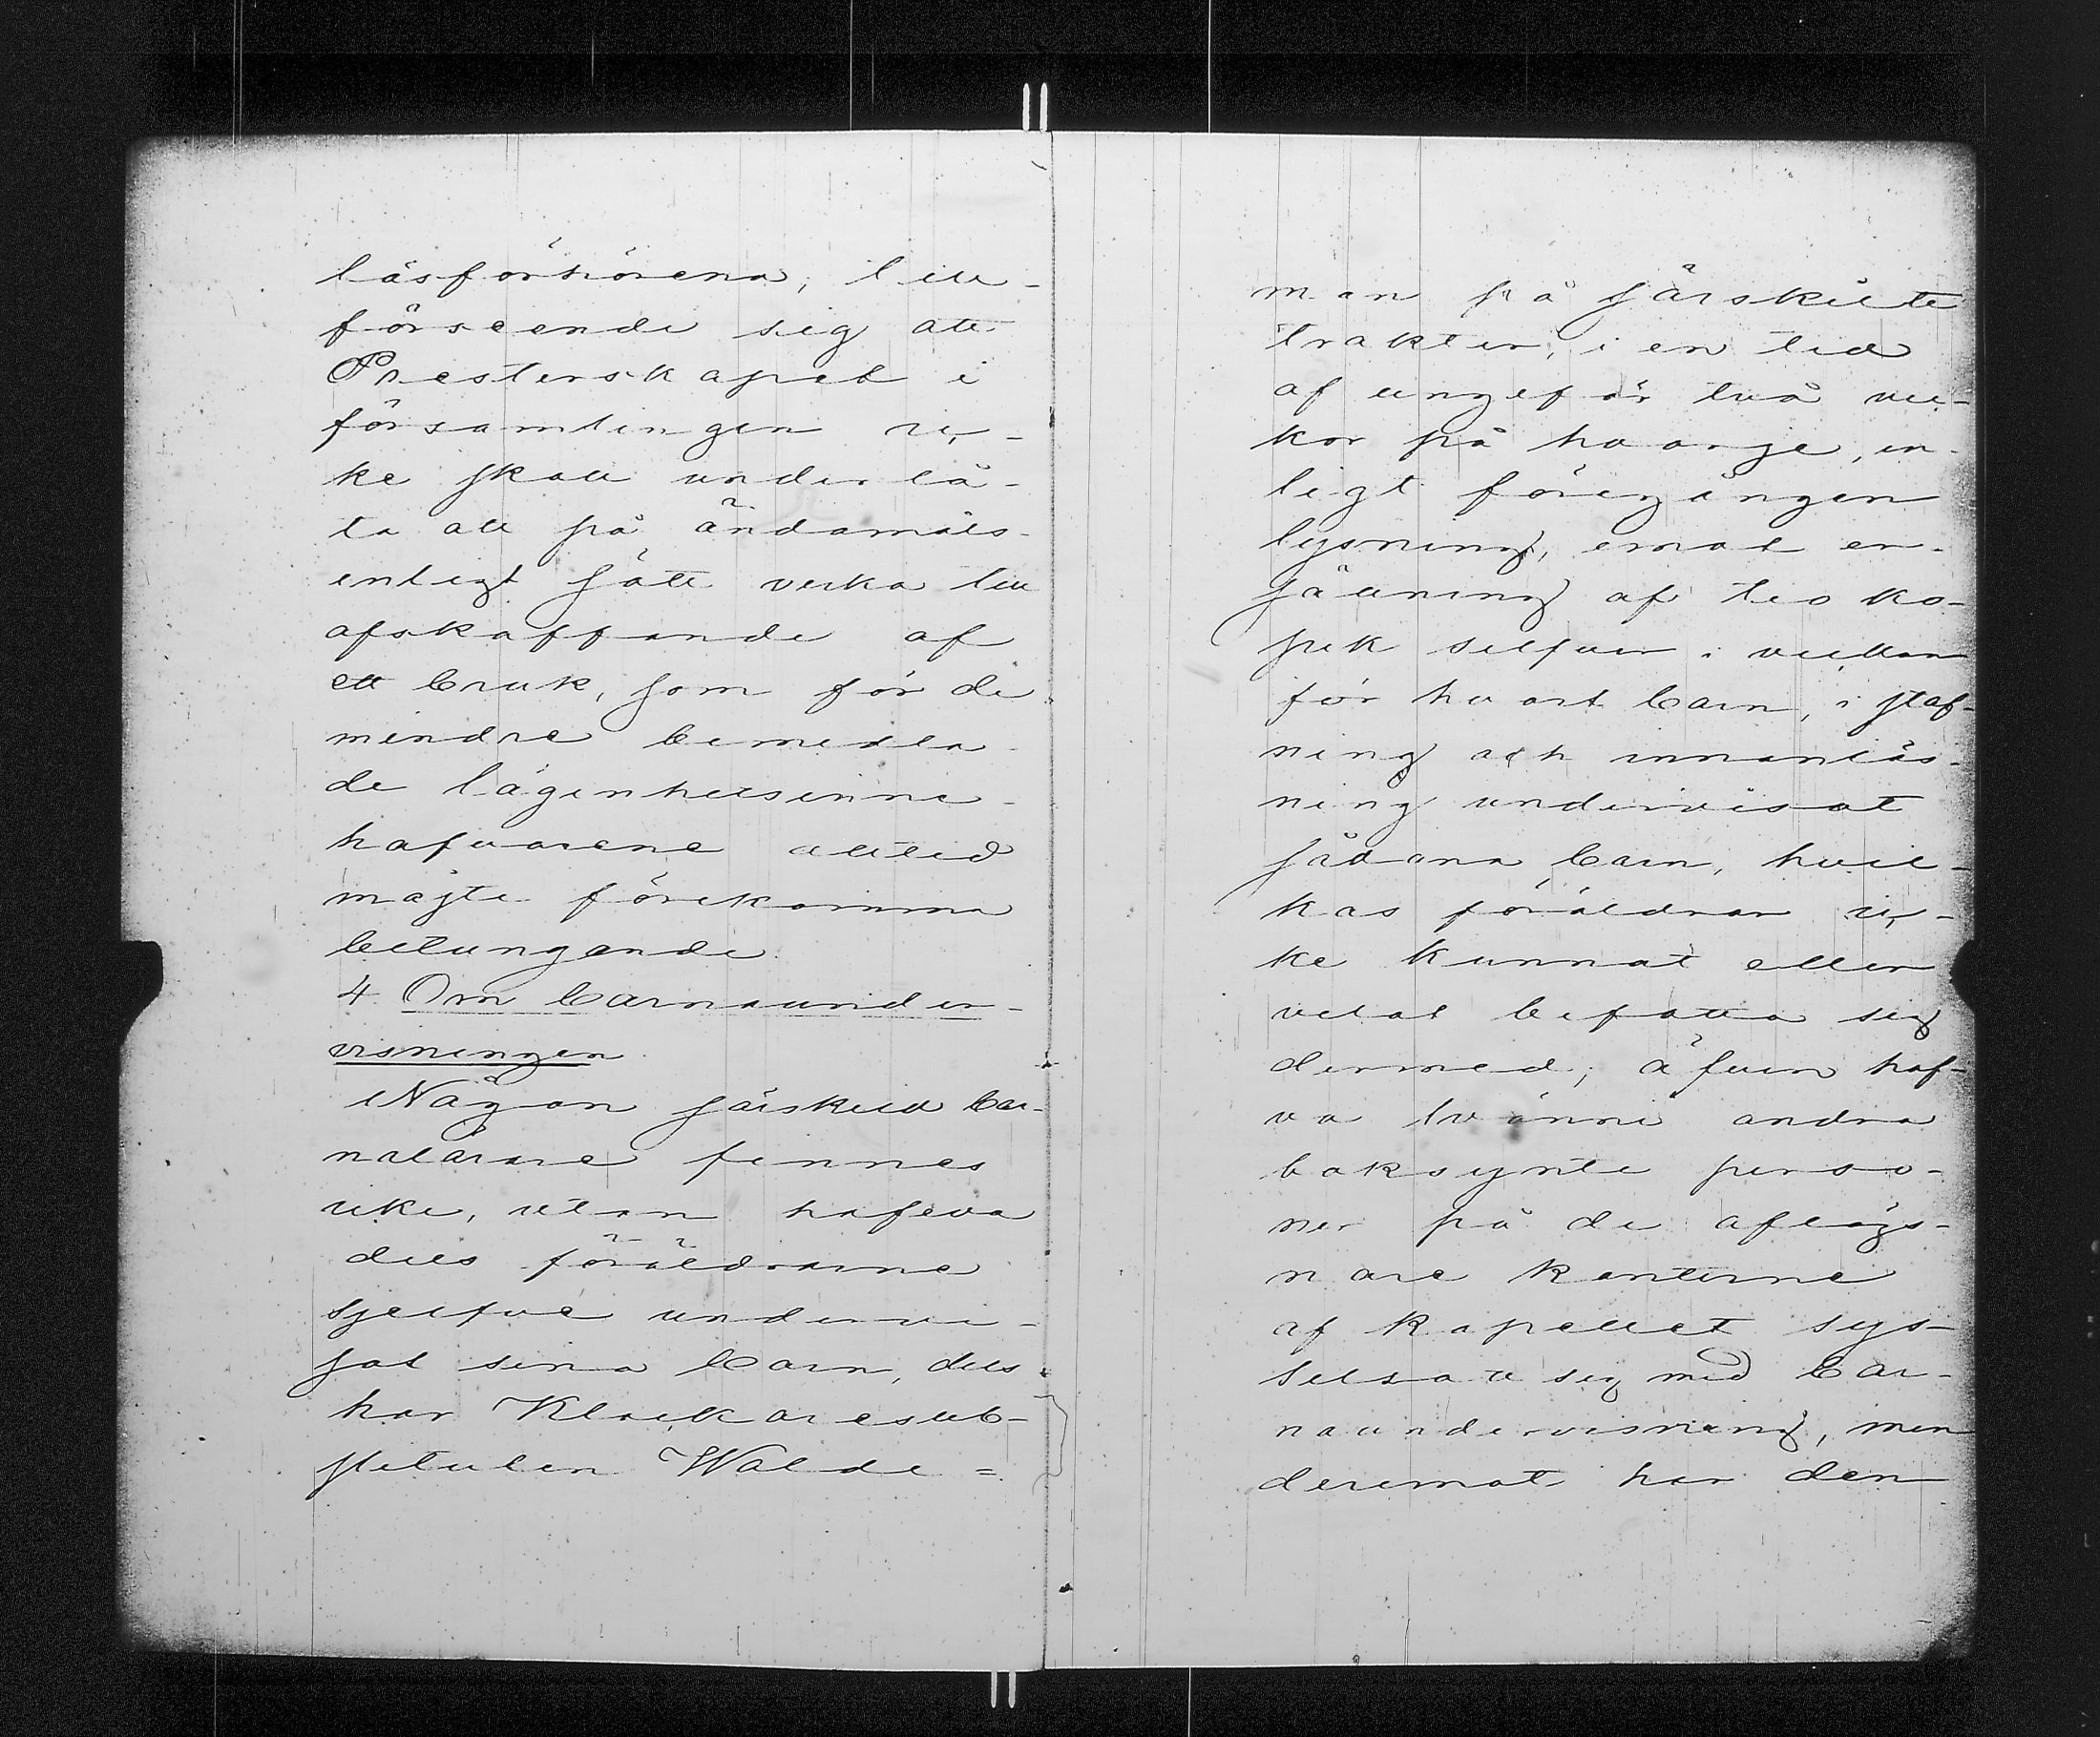 läsförhören, till-
förseende sig att
Presterskapet i
församlingen ic-
ke skall underlå-
ta att på ändamåls-
enligt sätt verka till
afskaffande af
ett bruk, som för de
mindre bemedla-
de lägenhetsinne-
hafvarene alltid
måste förekomma
betungande.
4 Om barnaunder-
visningen
Någon särskild bar-
nalärare finnes
icke, utan hafva
dels föräldrarne
sjelfve undervi-
sat sina barn, dels
har Klockaresub-
stituten Walde=
man på särskilte
trakter, i en tid
af ungefär två vec-
kor på hvarje, en-
ligt föregången
lysning, emot er-
sättning af tio ko-
pek silfver i veckan
för hvart barn, i staf-
ning och innanläs-
ning undervisat
sådana barn, hvil-
kas föräldrar ic-
ke kunnat eller
velat befatta sig
dermed; äfven haf-
va tvänne andra
boksynte perso-
ner på de aflägs-
nare kanterne
af kapellet sys-
selsatt sig med bar-
naundervisning, men
deremot har den